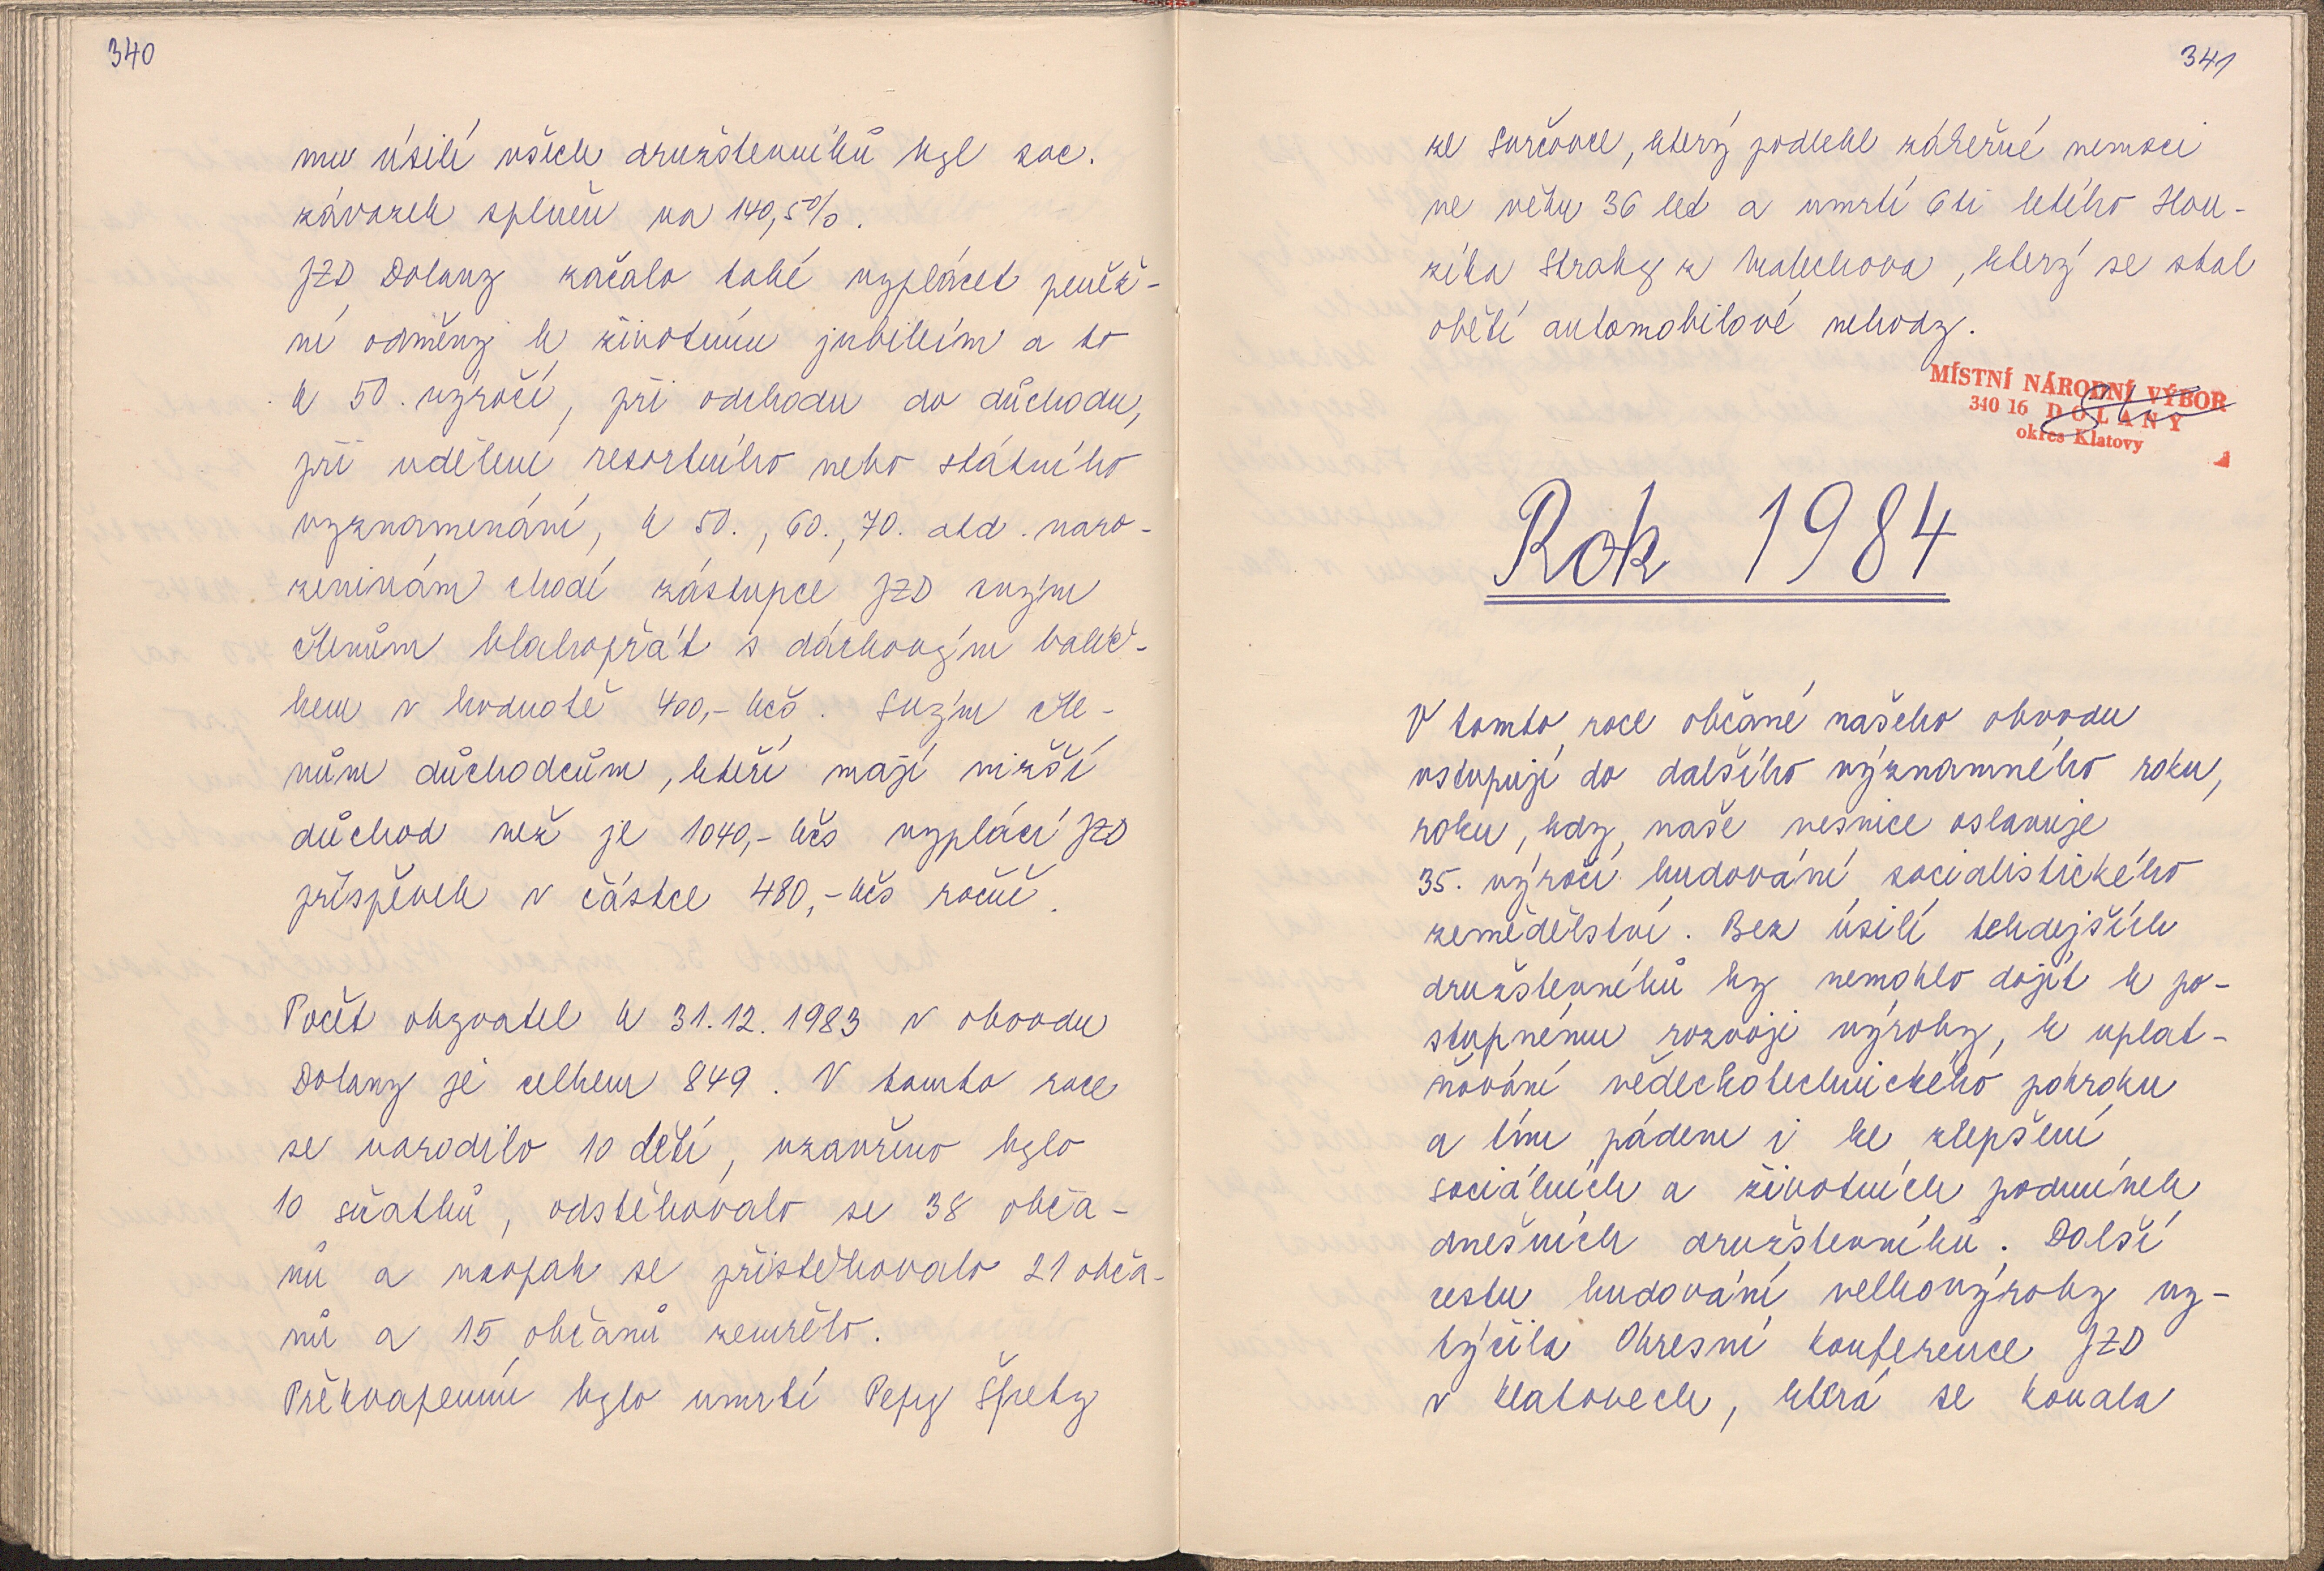 340
mu úsilí všech družstevníků byl soc.
závazek splněn na 140,5%.
JZD Dolany začalo také vyplácet peněž-
ní odměny k životním jubileím a to
k 50. výročí, při odchodu do důchodu,
při udělení resortního nebo státního
vyznamenání, k 50., 60., 70. atd. naro-
zeninám chodí zástupce JZD svým
členům blahopřát s dárkovým balíč-
kem v hodnotě 400,- kčs. Svým čle-
nům důchodcům, kteří mají nižší
důchod než je 1040,- kčs vyplácí JZD
příspěvek v částce 480,- kčs ročně.
Počet obyvatel k 31.12.1983 v obvodu
Dolany je celkem 849. V tomto roce
se narodilo 10 dětí, uzavřeno bylo
10 sňatků, odstěhovalo se 38 obča-
nů a naopak se přistěhovalo 21 obča-
nů a 15 občanů zemřelo.
Překvapením bylo umrtí Pepy Šprety
341
ze Svrčovce, který podlehl zákeřné nemoci
ve věku 36 let a umrtí 6ti letého Hon-
zíka Straky z Malechova, který se stal
obětí automobilové nehody.
MÍSTNÍ NÁRODNÍ VÝBOR
340 16 DOLANY
okres Klatovy
Rok 1984
V tomto roce občané našeho obvodu
vstupují do dalšího významného roku,
roku, kdy naše vesnice oslavuje
35. výročí budování socialistického
zemědělství. Bez úsilí tehdejších
družstevníků by nemohlo dojít k po-
stupnému rozvoji výroby, k uplat-
ňování vědeckotechnického pokroku
a tím pádem i ke zlepšení
sociálních a životních podmínek
dnešních družstevníků. Další
cestu budování velkovýroby vy-
týčila Okresní konference JZD
v Klatovech, která se konala